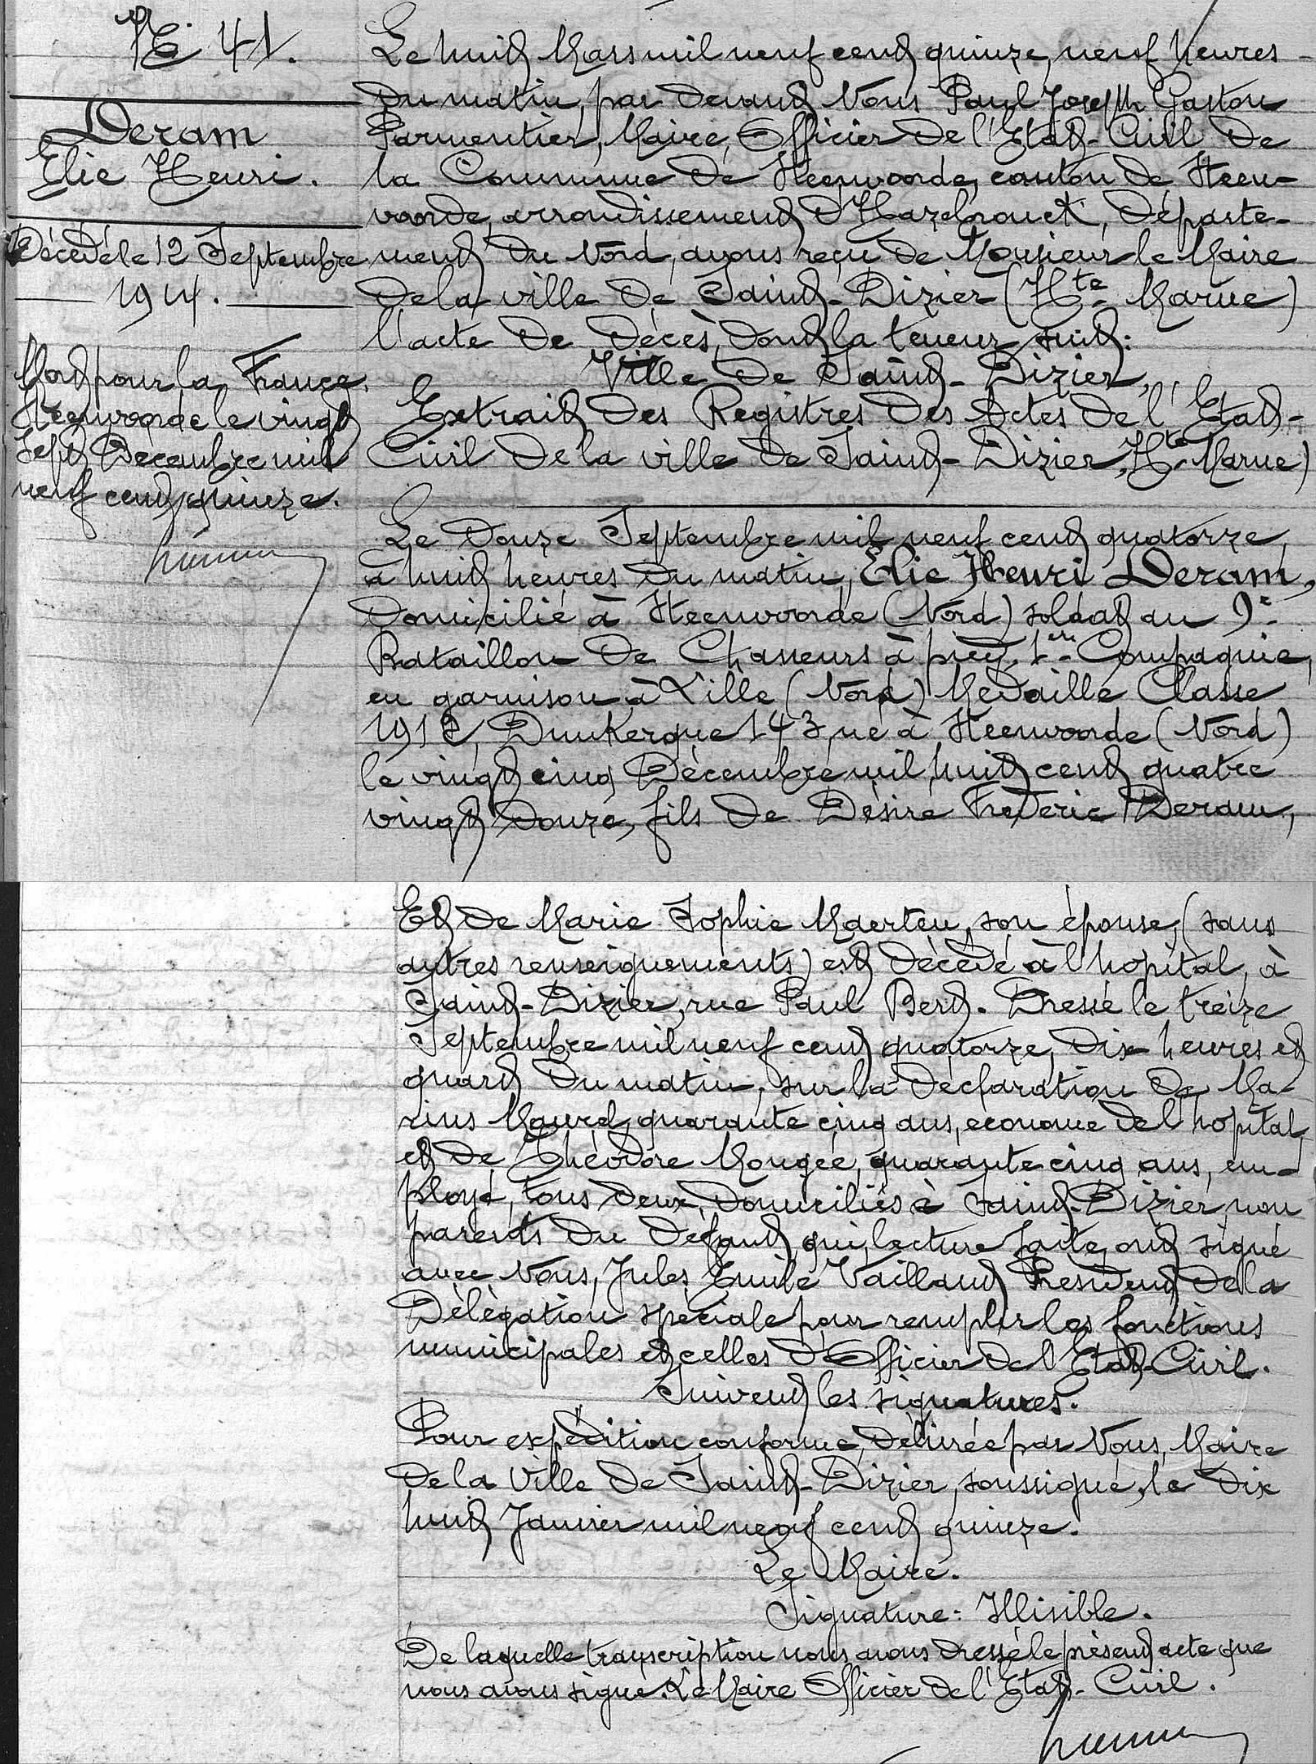 N° 41.
Deram
Elie Henri.
Décédé le 12 Septembre
1914.
Mort pour la France.
Steenvoorde le vingt
sept Décembre mil
neuf cent quinze.
Le huit Mars mil neuf cent quinze, neuf heures
du matin, par devant Nous Paul Joseph Gaston
Parmentier, Maire, Officier de l'Etat-Civil de
la Commune de Steenvoorde, canton de Steen-
voorde, arrondissement d'Hazebrouck, départe-
ment du Nord, avons reçu de Monsieur le Maire
de la ville de Saint-Dizier (Hte Marne)
l'acte de décès, dont la teneur suit:
Ville de Saint-Dizier,
Extrait des Registres des Actes de l'Etat-
Civil de la ville de Saint-Dizier, Hte Marne)
Le douze Septembre mil neuf cent quatorze,
à huit heures du matin, Elie Henri Deram,
domicilié à Steenvoorde (Nord) soldat au 9e
Bataillon de Chasseurs à pied, 1ère Compagnie,
en garnison à Lille (Nord) Médaille Classe
1912, Dunkerque 143, né à Steenvoorde (Nord)
le vingt cinq Décembre mil huit cent quatre
vingt douze, fils de Désiré Frédéric Deram,
Et de Marie Sophie Maerten, son épouse, (sans
autres renseignements) est décédé à l'hopital, à
Saint-Dizier, rue Paul Bert. Dressé le treize
Septembre mil neuf cent quatorze, dix heures et
quart du matin, sur la déclaration de Ma-
rius Maurel, quarante cinq ans, econome de l'hopital
et de Théodore Mougée, quarante cinq ans, em-
ployé, tous deux domiciliés à Saint-Dizier, non
parents du défunt, qui, lecture faite, ont signé
avec Nous, Jules Emile Vaillant Président de la
Délégation spéciale pour remplir les fonctions
municipales et celles d'Officier de l'Etat-Civil.
Suivent les signatures.
Pour expédition conforme, délivrée par Nous, Maire
de la Ville de Saint-Dizier, soussigné, le dix
huit Janvier mil neuf cent quinze.
Le Maire.
Signature: Illisible.
De laquelle transcription nous avons dressé le présent acte que
nous avons signé. Le Maire Officier de l'Etat-Civil.